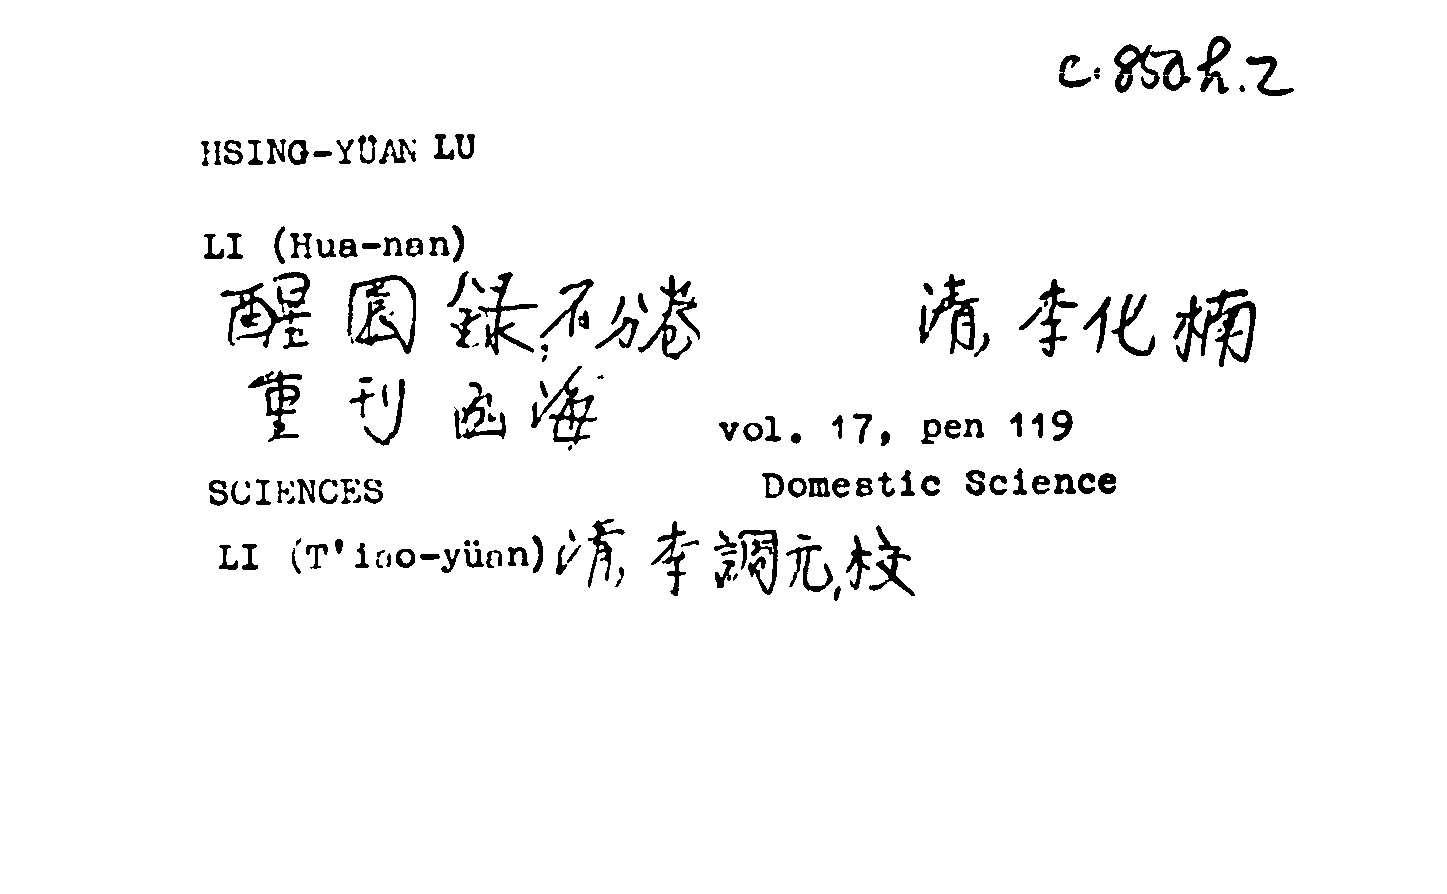 C. 850.h.2
HSING-YÜAN LU
LI (Hua-nan)
醒園録, 不分卷 清, 李化楠
重刊函海 vol. 17, pen 119
SCIENCES Domestic Science
LI (T'iao-yüan) 清, 李調元, 校